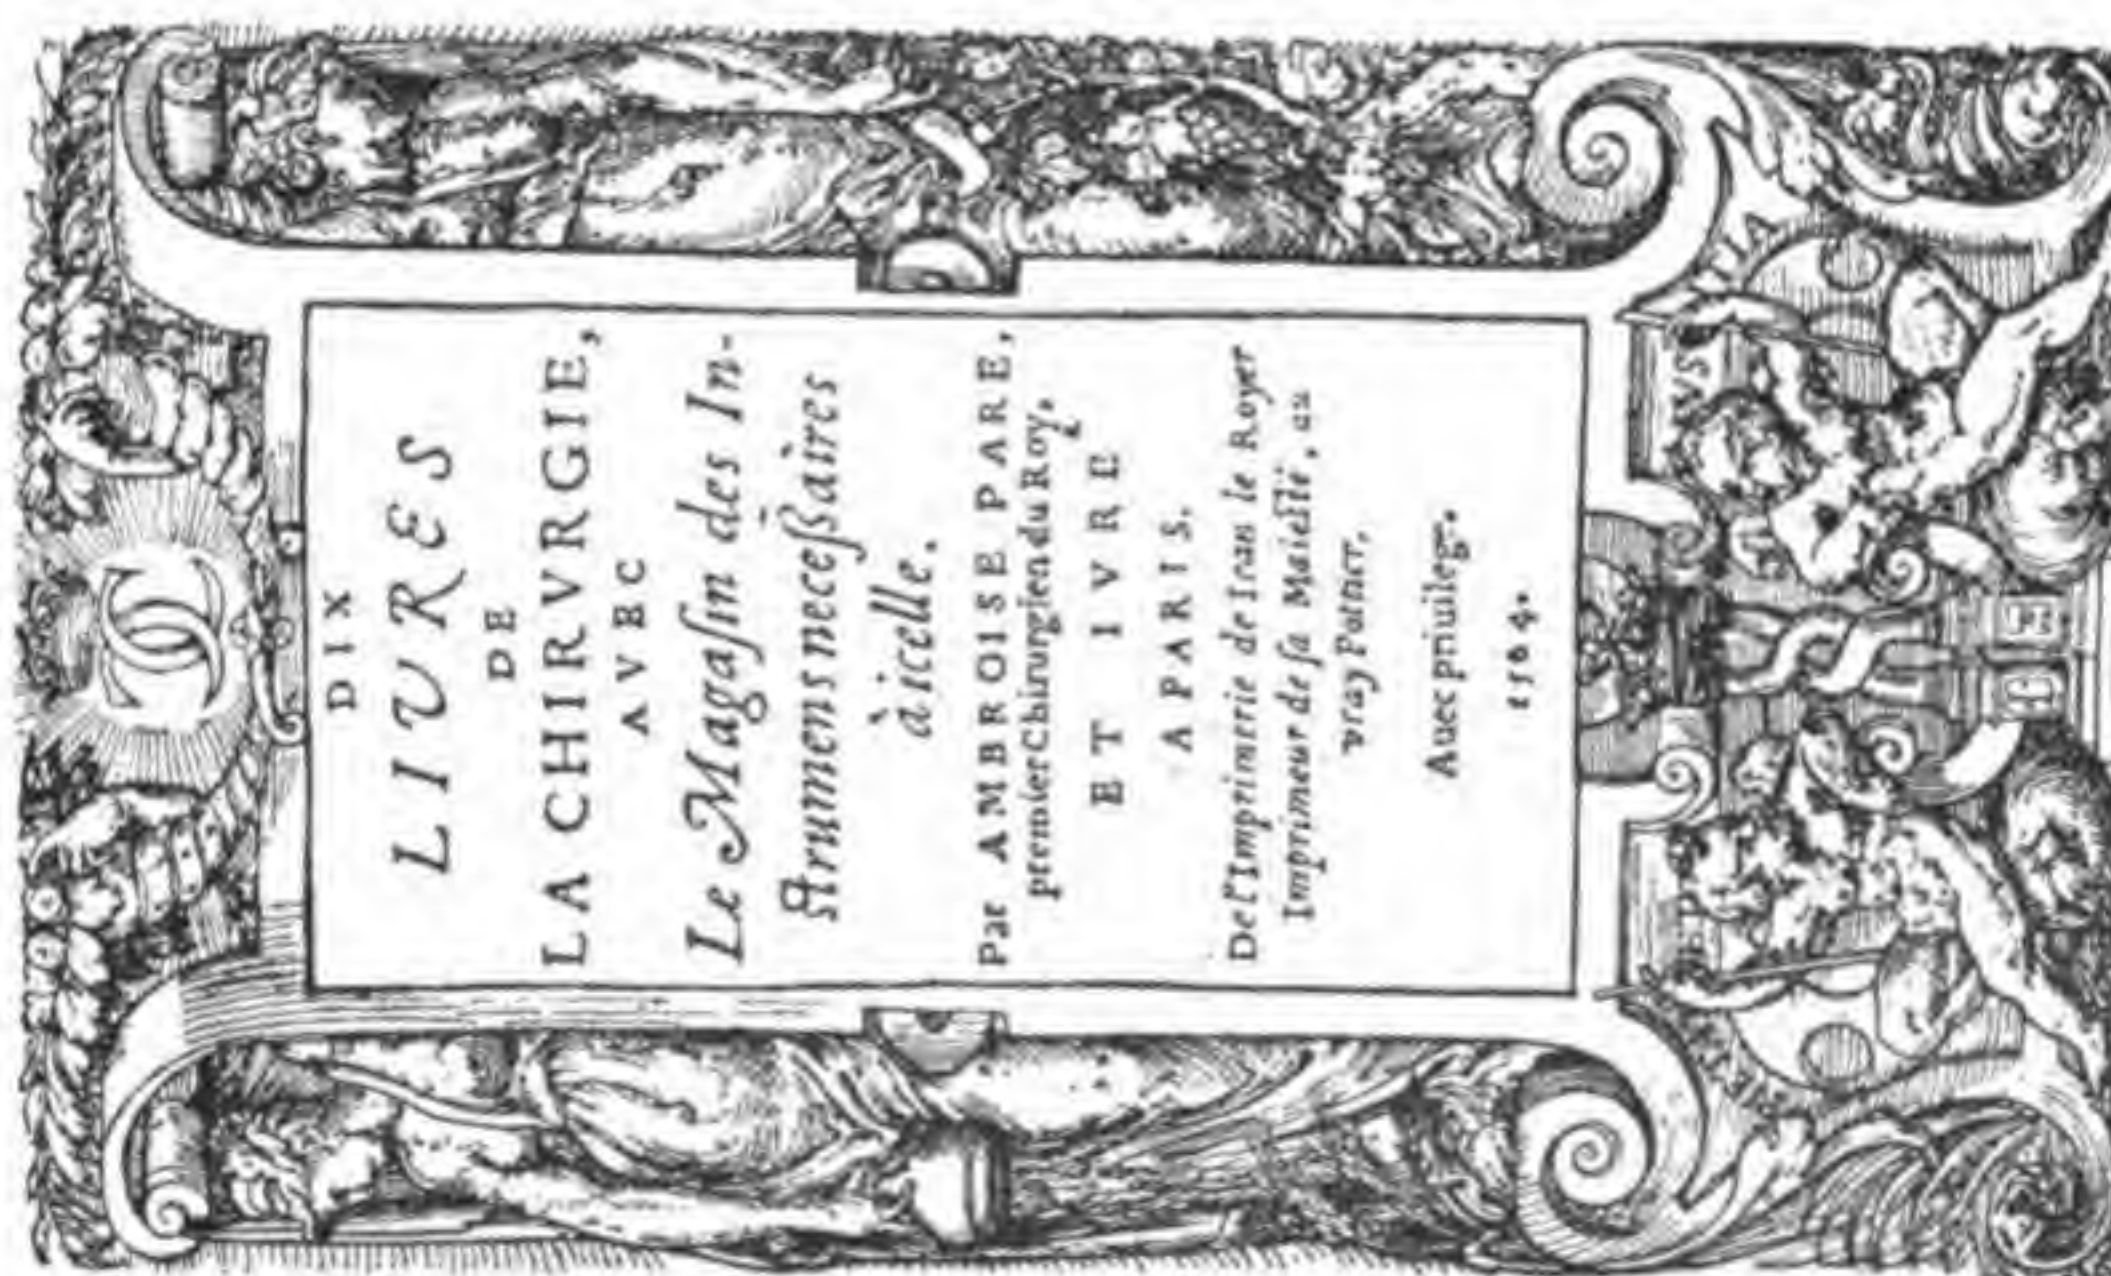 DIX
LIVRES
DE
LA CHIRVRGIE,
AVEC
Le Magasin des In-
strumens necessaires
à icelle.
Par AMBROISE PARE,
premier Chirurgien du Roy,
ET IVRE
A PARIS.
De l'Imprimerie de Iean le Royer
Imprimeur de sa Maiesté, au
vray Potier,
Auec priuilege.
1564.